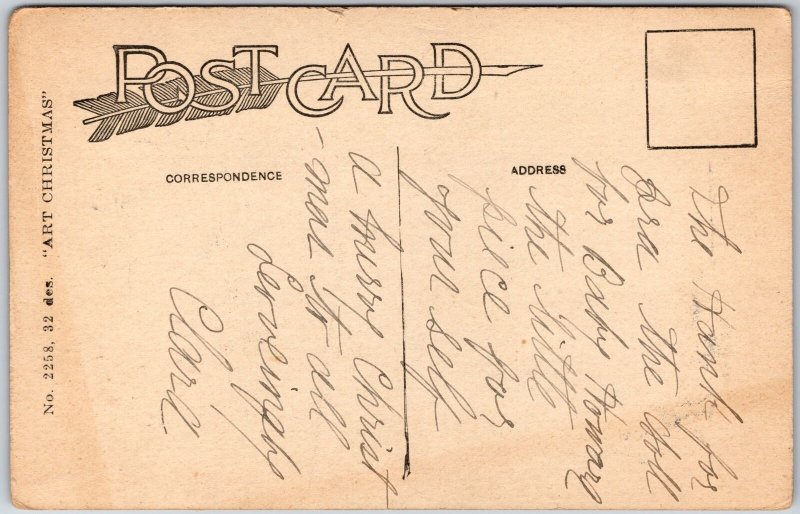 POST CARD
CORRESPONDENCE
ADDRESS
No. 2258, 32 des. "ART CHRISTMAS"
The Hank for
Ora the doll
for Baby Howard
the little
piece for
your self
a merry Christ
-mas to all
Lovingly
Clara